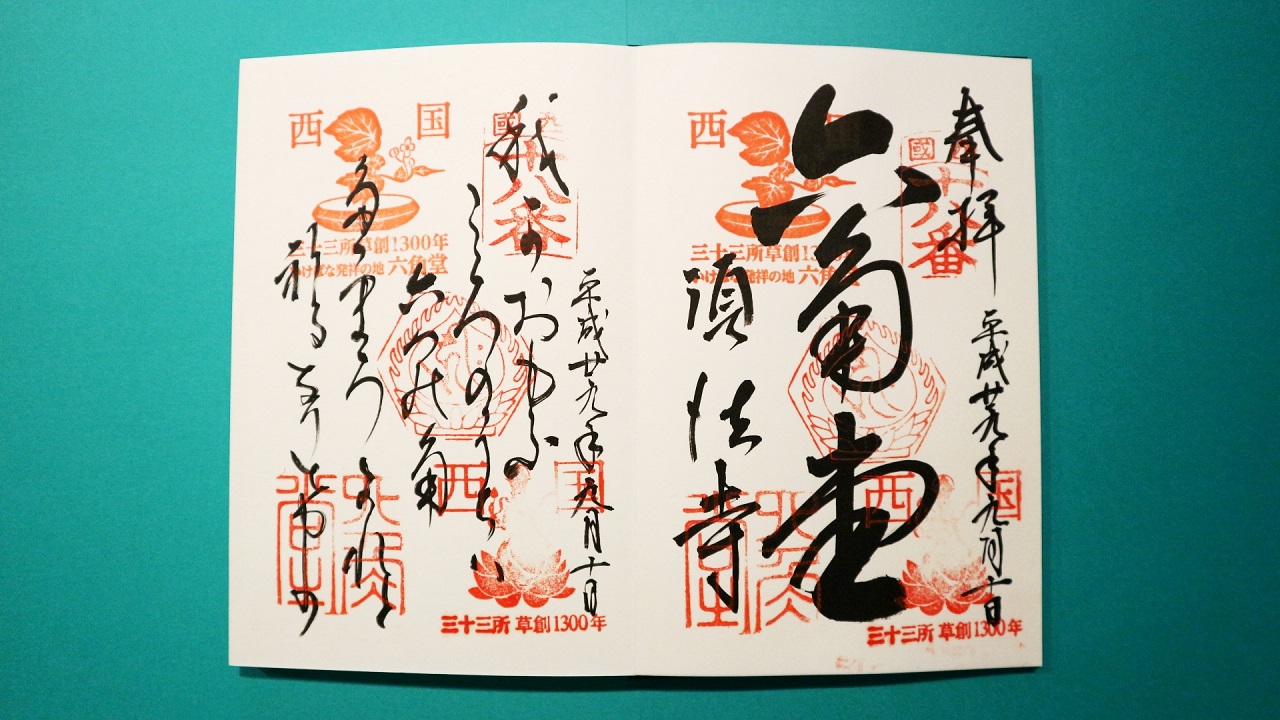 奉拝 平成廿九年九月十日
六角堂
頂法寺
國
十八番
西国
三十三所草創1300年
いけばな発祥の地 六角堂
西国
三十三所 草創1300年
六角堂
平成廿九年九月十日
我かおもふ
こころのうちハ
六つ乃角
祈るなり
國
十八番
西国
三十三所草創1300年
いけばな発祥の地 六角堂
西国
三十三所 草創1300年
六角堂